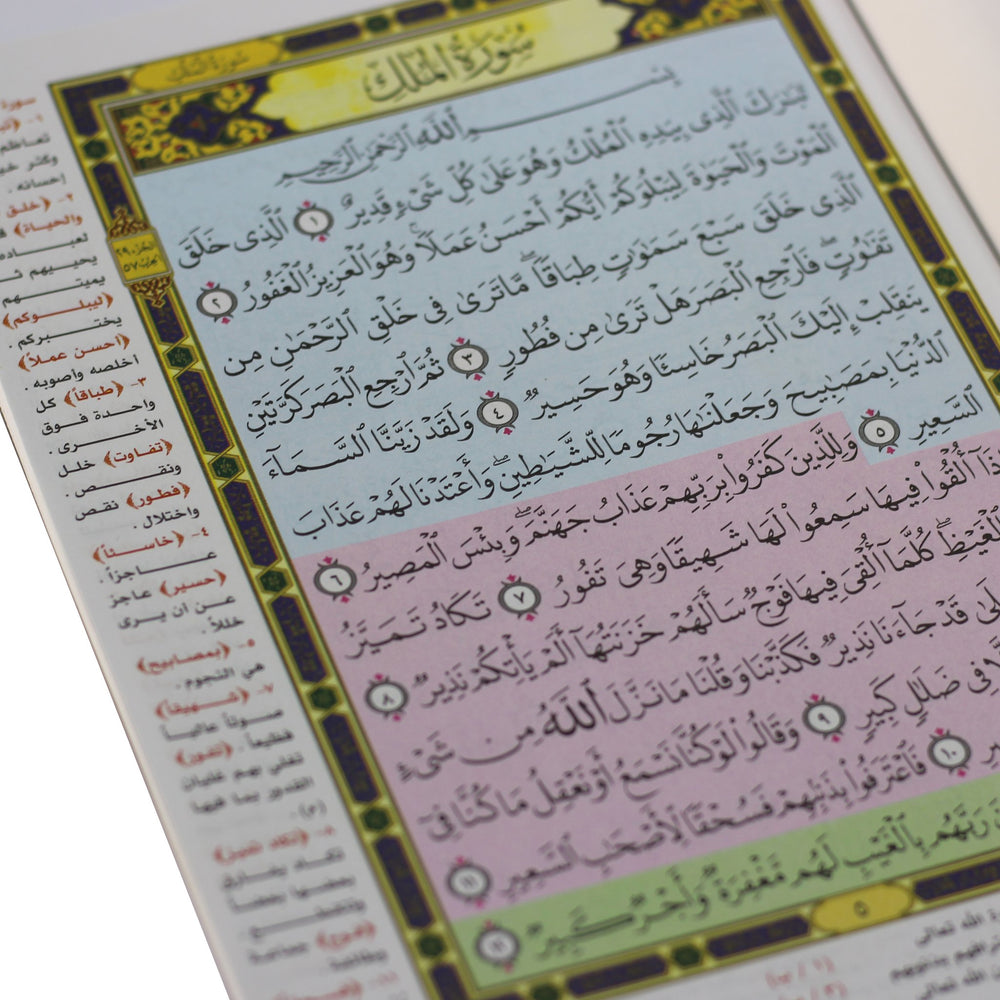 سورة الملك
سُورَةُ المُلْكِ
بِسْمِ اللَّهِ الرَّحْمَٰنِ الرَّحِيمِ
تَبَٰرَكَ ٱلَّذِى بِيَدِهِ ٱلْمُلْكُ وَهُوَ عَلَىٰ كُلِّ شَىْءٍ قَدِيرٌ ١ ٱلَّذِى خَلَقَ
ٱلْمَوْتَ وَٱلْحَيَوٰةَ لِيَبْلُوَكُمْ أَيُّكُمْ أَحْسَنُ عَمَلًا ۚ وَهُوَ ٱلْعَزِيزُ ٱلْغَفُورُ ٢
ٱلَّذِى خَلَقَ سَبْعَ سَمَٰوَٰتٍ طِبَاقًا ۖ مَّا تَرَىٰ فِى خَلْقِ ٱلرَّحْمَٰنِ مِن
تَفَٰوُتٍ ۖ فَٱرْجِعِ ٱلْبَصَرَ هَلْ تَرَىٰ مِن فُطُورٍ ٣ ثُمَّ ٱرْجِعِ ٱلْبَصَرَ كَرَّتَيْنِ
يَنقَلِبْ إِلَيْكَ ٱلْبَصَرُ خَاسِئًا وَهُوَ حَسِيرٌ ٤ وَلَقَدْ زَيَّنَّا ٱلسَّمَآءَ
ٱلدُّنْيَا بِمَصَٰبِيحَ وَجَعَلْنَٰهَا رُجُومًا لِّلشَّيَٰطِينِ ۖ وَأَعْتَدْنَا لَهُمْ عَذَابَ
ٱلسَّعِيرِ ٥ وَلِلَّذِينَ كَفَرُوا۟ بِرَبِّهِمْ عَذَابُ جَهَنَّمَ ۖ وَبِئْسَ ٱلْمَصِيرُ ٦
أُلْقُوا۟ فِيهَا سَمِعُوا۟ لَهَا شَهِيقًا وَهِىَ تَفُورُ ٧ تَكَادُ تَمَيَّزُ
ٱلْغَيْظِ ۖ كُلَّمَآ أُلْقِىَ فِيهَا فَوْجٌ سَأَلَهُمْ خَزَنَتُهَآ أَلَمْ يَأْتِكُمْ نَذِيرٌ ٨
قَدْ جَآءَنَا نَذِيرٌ فَكَذَّبْنَا وَقُلْنَا مَا نَزَّلَ ٱللَّهُ مِن شَىْءٍ
فِى ضَلَٰلٍ كَبِيرٍ ٩ وَقَالُوا۟ لَوْ كُنَّا نَسْمَعُ أَوْ نَعْقِلُ مَا كُنَّا فِىٓ
١٠ فَٱعْتَرَفُوا۟ بِذَنۢبِهِمْ فَسُحْقًا لِّأَصْحَٰبِ ٱلسَّعِيرِ ١١
رَبَّهُم بِٱلْغَيْبِ لَهُم مَّغْفِرَةٌ وَأَجْرٌ كَبِيرٌ ١٢
٥
إحسانه .
٢- ﴿خلق
والحياة﴾
يميتهم
﴿ليبلوكم﴾
يختبركم .
﴿أحسن عملاً﴾
أخلصه وأصوبه .
٣- ﴿طباقاً﴾ كل
واحدة فوق
الأخرى .
﴿تفاوت﴾ خلل
ونقص .
﴿فطور﴾ نقص
واختلال .
٤- ﴿خاسئاً﴾
عاجزاً .
﴿حسير﴾ عاجز
عن أن يرى
خللاً .
٥- ﴿بمصابيح﴾
هي النجوم .
٧- ﴿شهيقاً﴾
صوتاً عالياً
فظيعاً . ﴿تفور﴾
تغلي بهم غليان
القدور بما فيها
٨- ﴿تكاد تميز﴾
﴿فوج﴾ جماعة